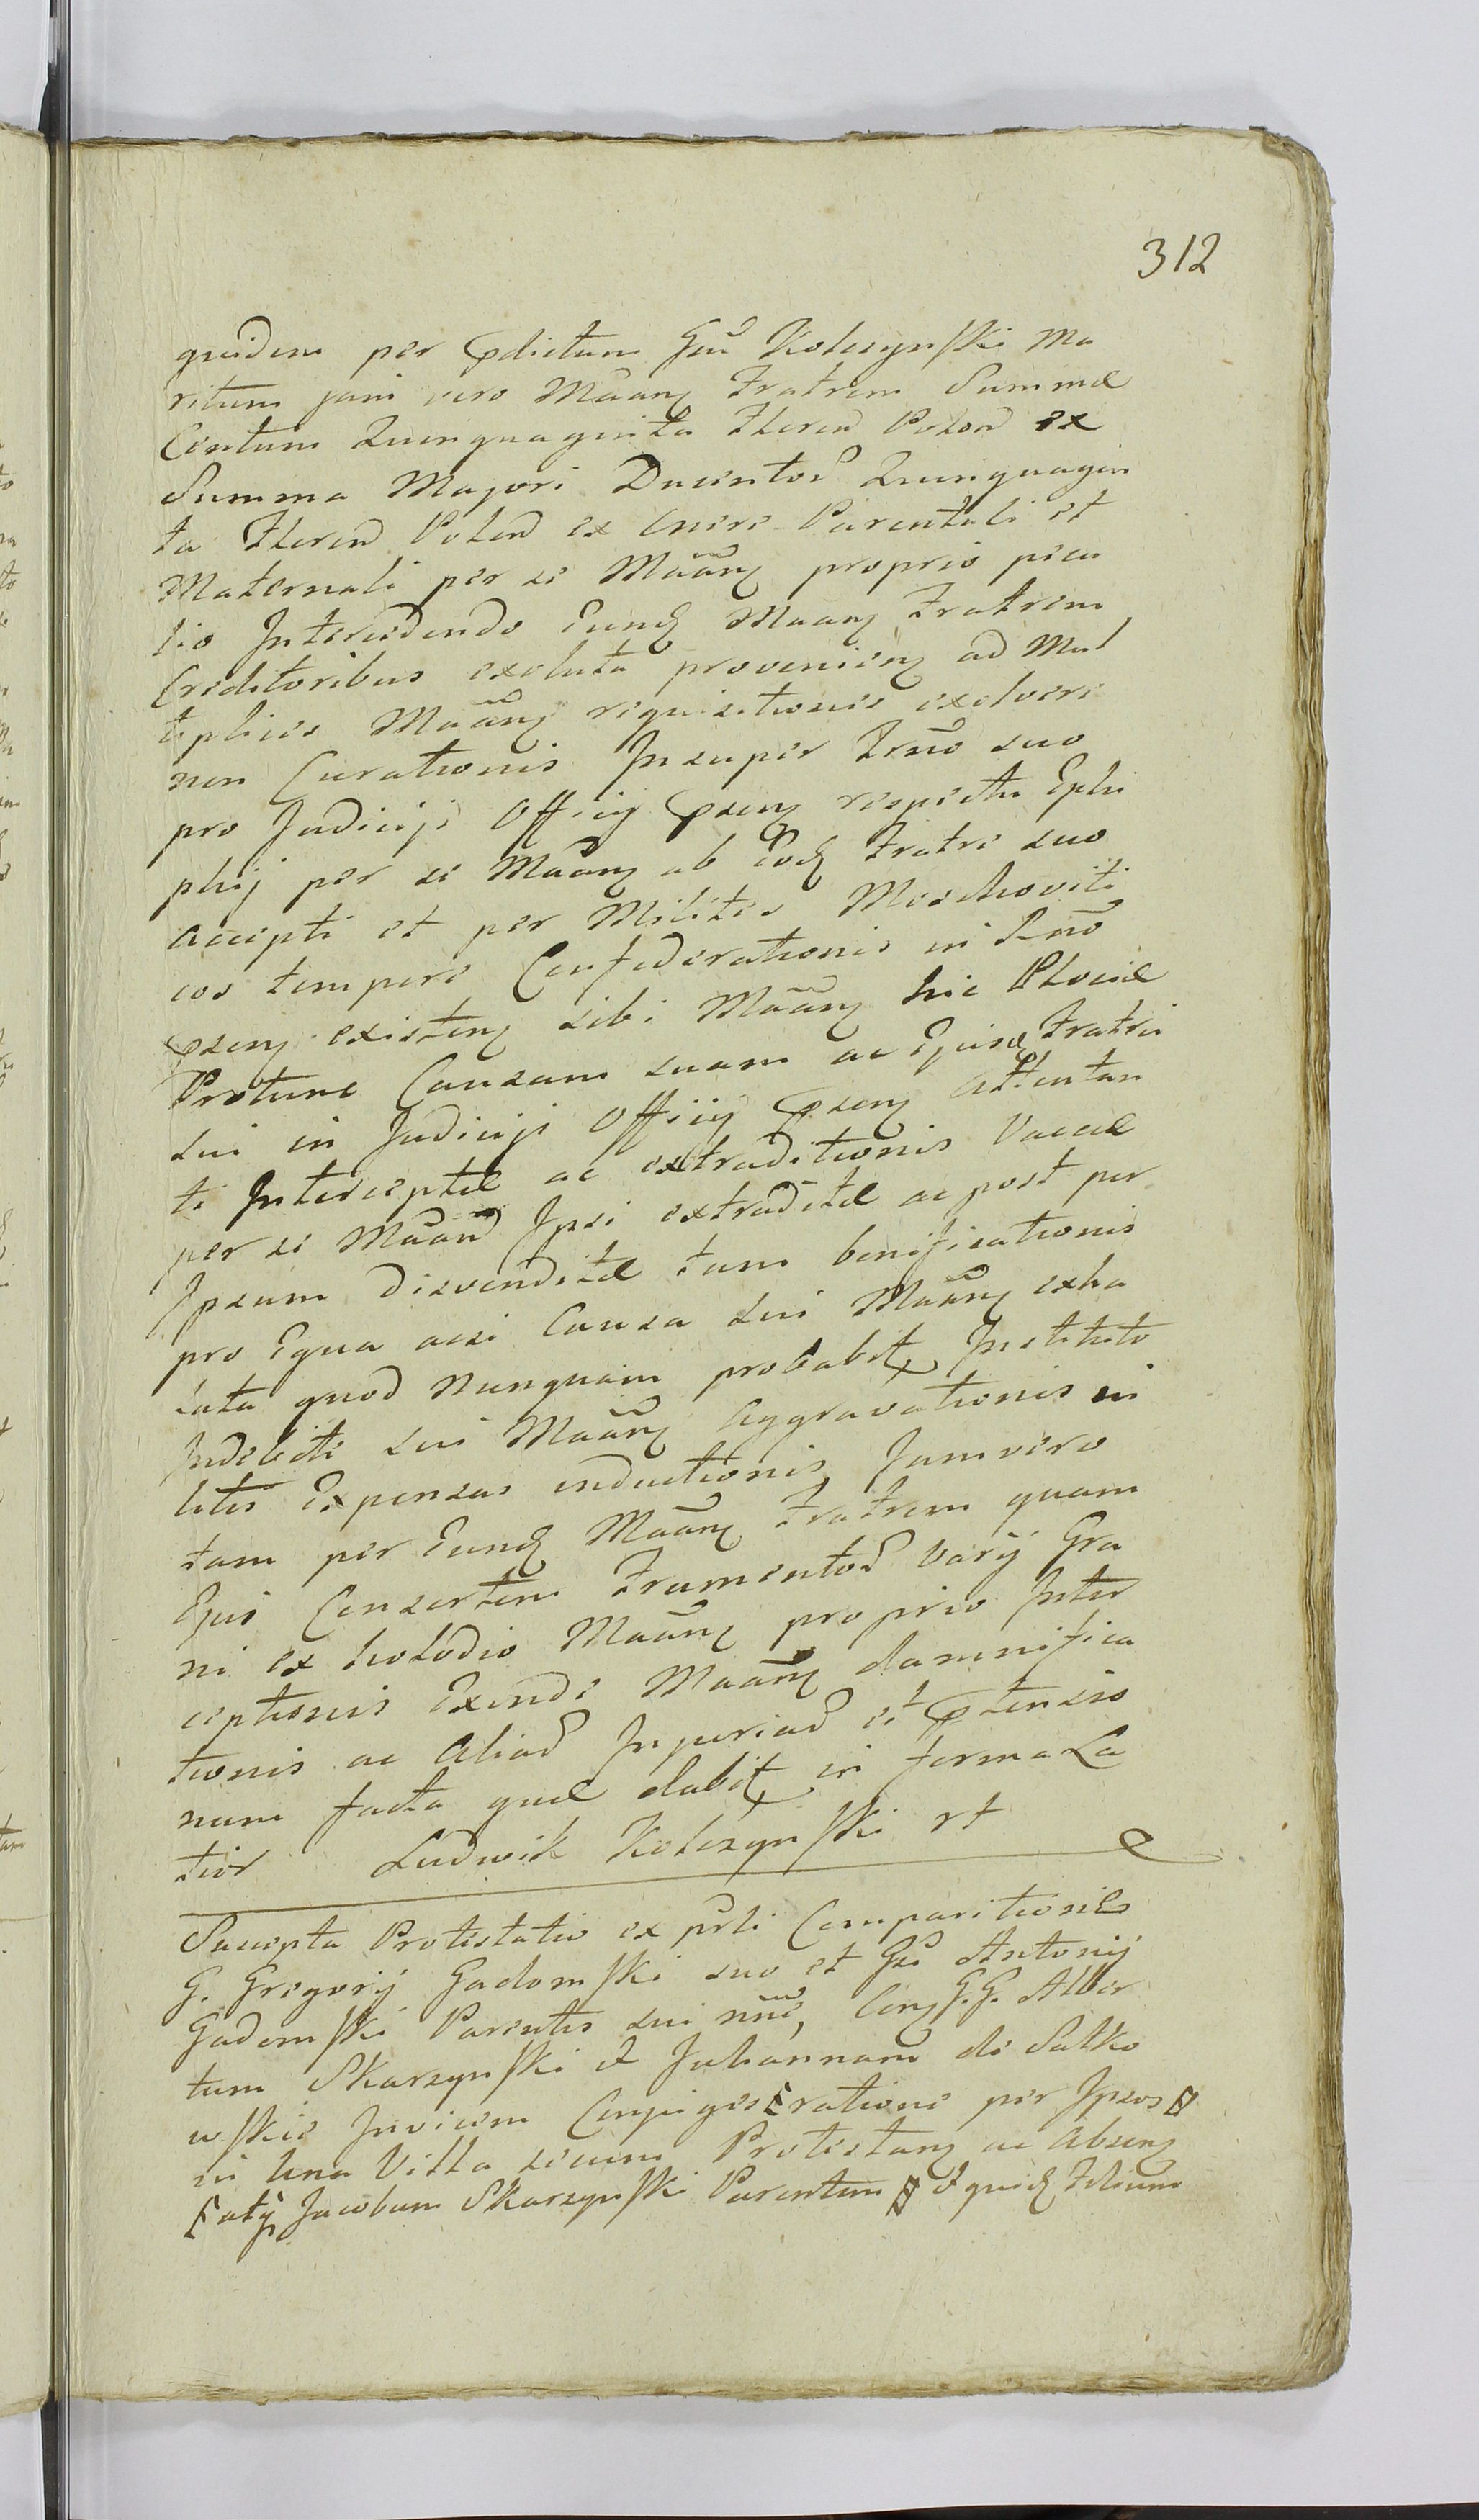 312
quidem per Pdictum Gnū Kolczynski Ma
ritum jam vero Māanz Fratrem Summæ
Centum Quinquaginta Floren Polon ex
Summa Majori Ducentor Quinquagin
ta Floren Polon ex onere Parentali et
Maternali per se Māanz proprio pecu
lio Intercedendo Eund Maanz Fratrem
Creditoribus exoluta provenienz ad Mul
tiplices Māanz requisitiones exolvere
non Curationis Insuper Trnō suo
pro Judicijs Officij Psenz respectu Ephi
phij per se Māanz ab Eod Fratre suo
accepti et per Milites Moschoviti
cos tempore Confederationis in Rnō
Psenz existenz sibi Māanz hic Plociæ
Protunc Causam suam ac Ejusd Fratris
sui in Judicijs Officij Psenz Attentan
ti Interceptæ ac extraditionis Vaccæ
per se Māand Ipsi extraditæ ac post per
Ipsum disvenditæ tam benificationis
pro Equa acsi Causa sui Māanz exha
lata quod nunquam probabit Instituto
Indebite sui Māanz Aggravationis in
litis Expensas inductionis Jamvero
tam per Eund Māanz Fratrem quam
Ejus Consortem Frumentor Varÿ Gra
ni ex holodio Māanz proprio Inter
ceptionis Exinde Maanz damnifica
tionis ac Aliar Injuriar et Ptensio
num facta quæ dabit in forma La
tior Ludwik Kolczynski rt
Suscepta Protestatio ex prli Comparitiones
G. Gregorÿ Gadomski suo et Gsi Antonij
Gadomski Parentis sui nnē, Conz G.G. Alber
tum Skarzynski et Juliannam de Sulko
wskie Invicem Conjuges ratione per Ipsos
in Una Villa secum Protestanz ac Absenz
Jacobum Skarzynski Parentem et quid Filium